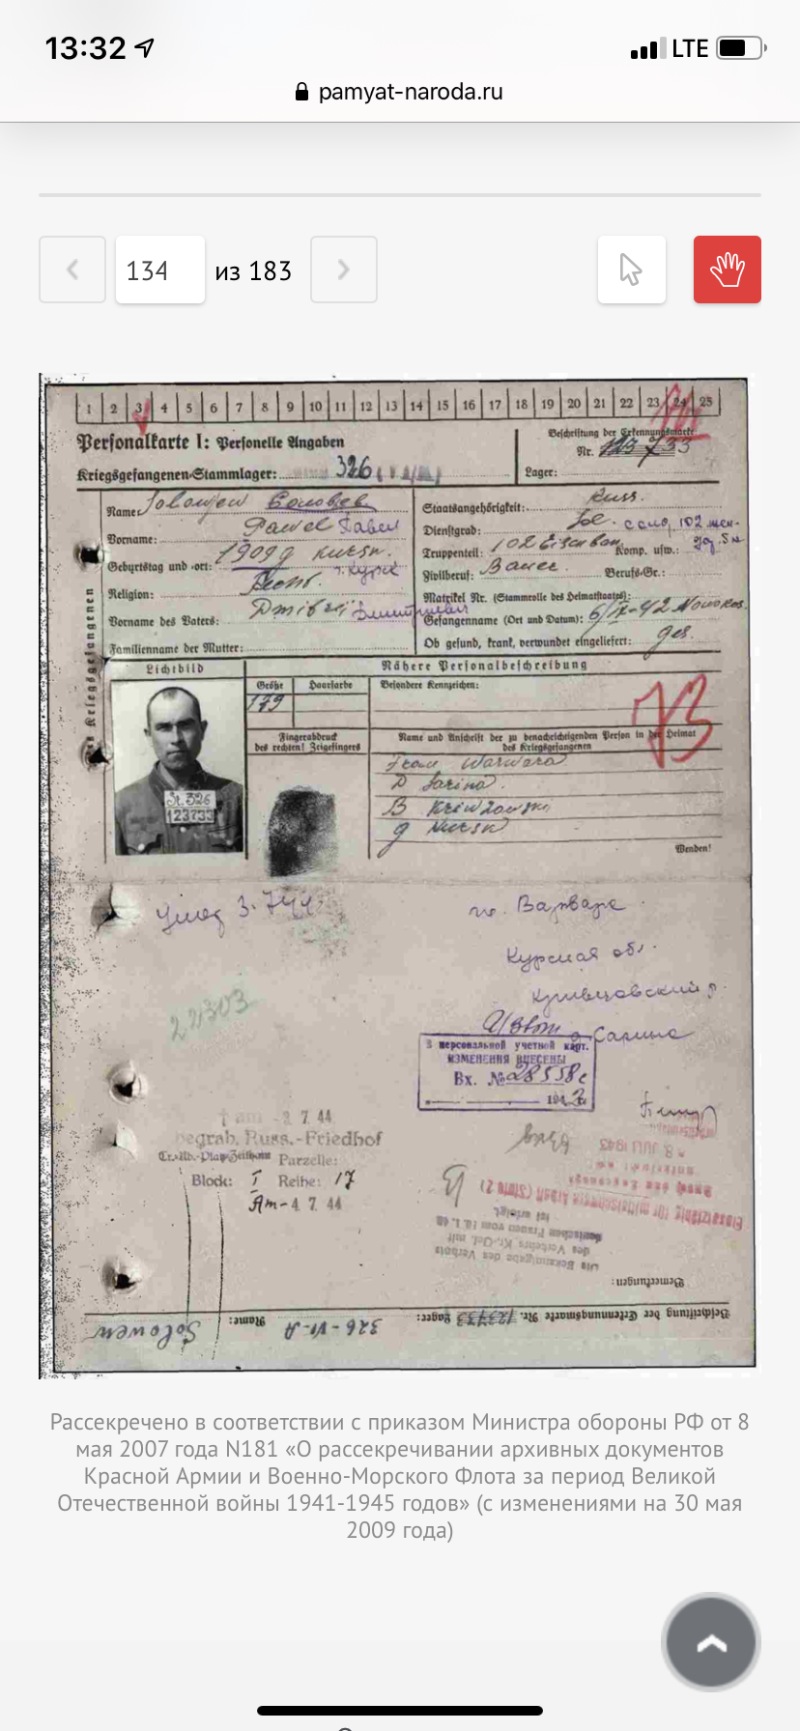 13:32
LTE
pamyat-naroda.ru
134 из 183
1 2 3 4 5 6 7 8 9 10 11 12 13 14 15 16 17 18 19 20 21 22 23 24 25
Personalkarte I: Personelle Angaben
Kriegsgefangenen-Stammlager: 326
Beschriftung der Erkennungsmarke
Nr. 123733
Lager:
Name: Solowjew Соловьев
Vorname: Pawel Павел
Geburtstag und -ort: 1909 Kursk г. Курск
Religion:
Vorname des Vaters: Dmitri Дмитриевич
Familienname der Mutter:
Staatsangehörigkeit: Russ.
Dienstgrad: Sol.
Truppenteil: 102 Komp. usw.:
Zivilberuf: Bauer Berufs-Gr.:
Matrikel Nr. (Stammrolle des Heimatstaates):
Gefangennahme (Ort und Datum): 6/IX-42
Ob gesund, krank, verwundet eingeliefert: ges.
des Kriegsgefangenen
Lichtbild
Nähere Personalbeschreibung
Größe Haarfarbe Besondere Kennzeichen:
179
Fingerabdruck
des rechten! Zeigefingers
Name und Anschrift der zu benachrichtigenden Person in der Heimat
des Kriegsgefangenen
Frau Warwara
D Sarino
B Kriwzowski
g Kursk
Wenden!
St. 326
123733
73
Умер 3.7.44
Варваре
Курская обл.
Кривцовский р.
Сарино
22303
В персональной учетной карт.
ИЗМЕНЕНИЯ ВНЕСЕНЫ
Вх. № 28558с
† am -3. 7. 44
begrab. Russ.-Friedhof
Tr.-Ub.-Platz Zeithain Parzelle:
Block: I Reihe: 17
Am - 4. 7. 44
8. JULI 1943
Einsatzfähig für mittelschwere Arbeit (Stufe 2)
ist erfolgt.
des Verkehrs Kr.-Gef. mit
die Bekanntgabe des Verbots
Bemerkungen:
Beschriftung der Erkennungsmarke Nr. 123733 Lager: 326-VI-A Name: Solowew
Рассекречено в соответствии с приказом Министра обороны РФ от 8
мая 2007 года N181 «О рассекречивании архивных документов
Красной Армии и Военно-Морского Флота за период Великой
Отечественной войны 1941-1945 годов» (с изменениями на 30 мая
2009 года)